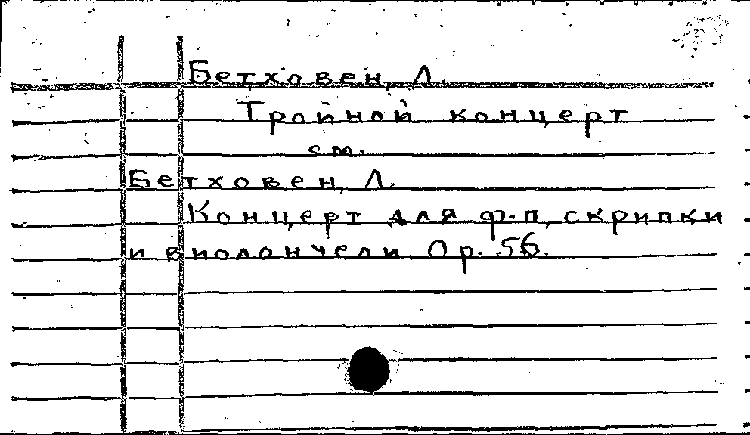 Бетховен, Л.
Тройной концерт
см.
Бетховен, Л.
Концерт для ф.-п., скрипки
и виолончели Ор. 56.